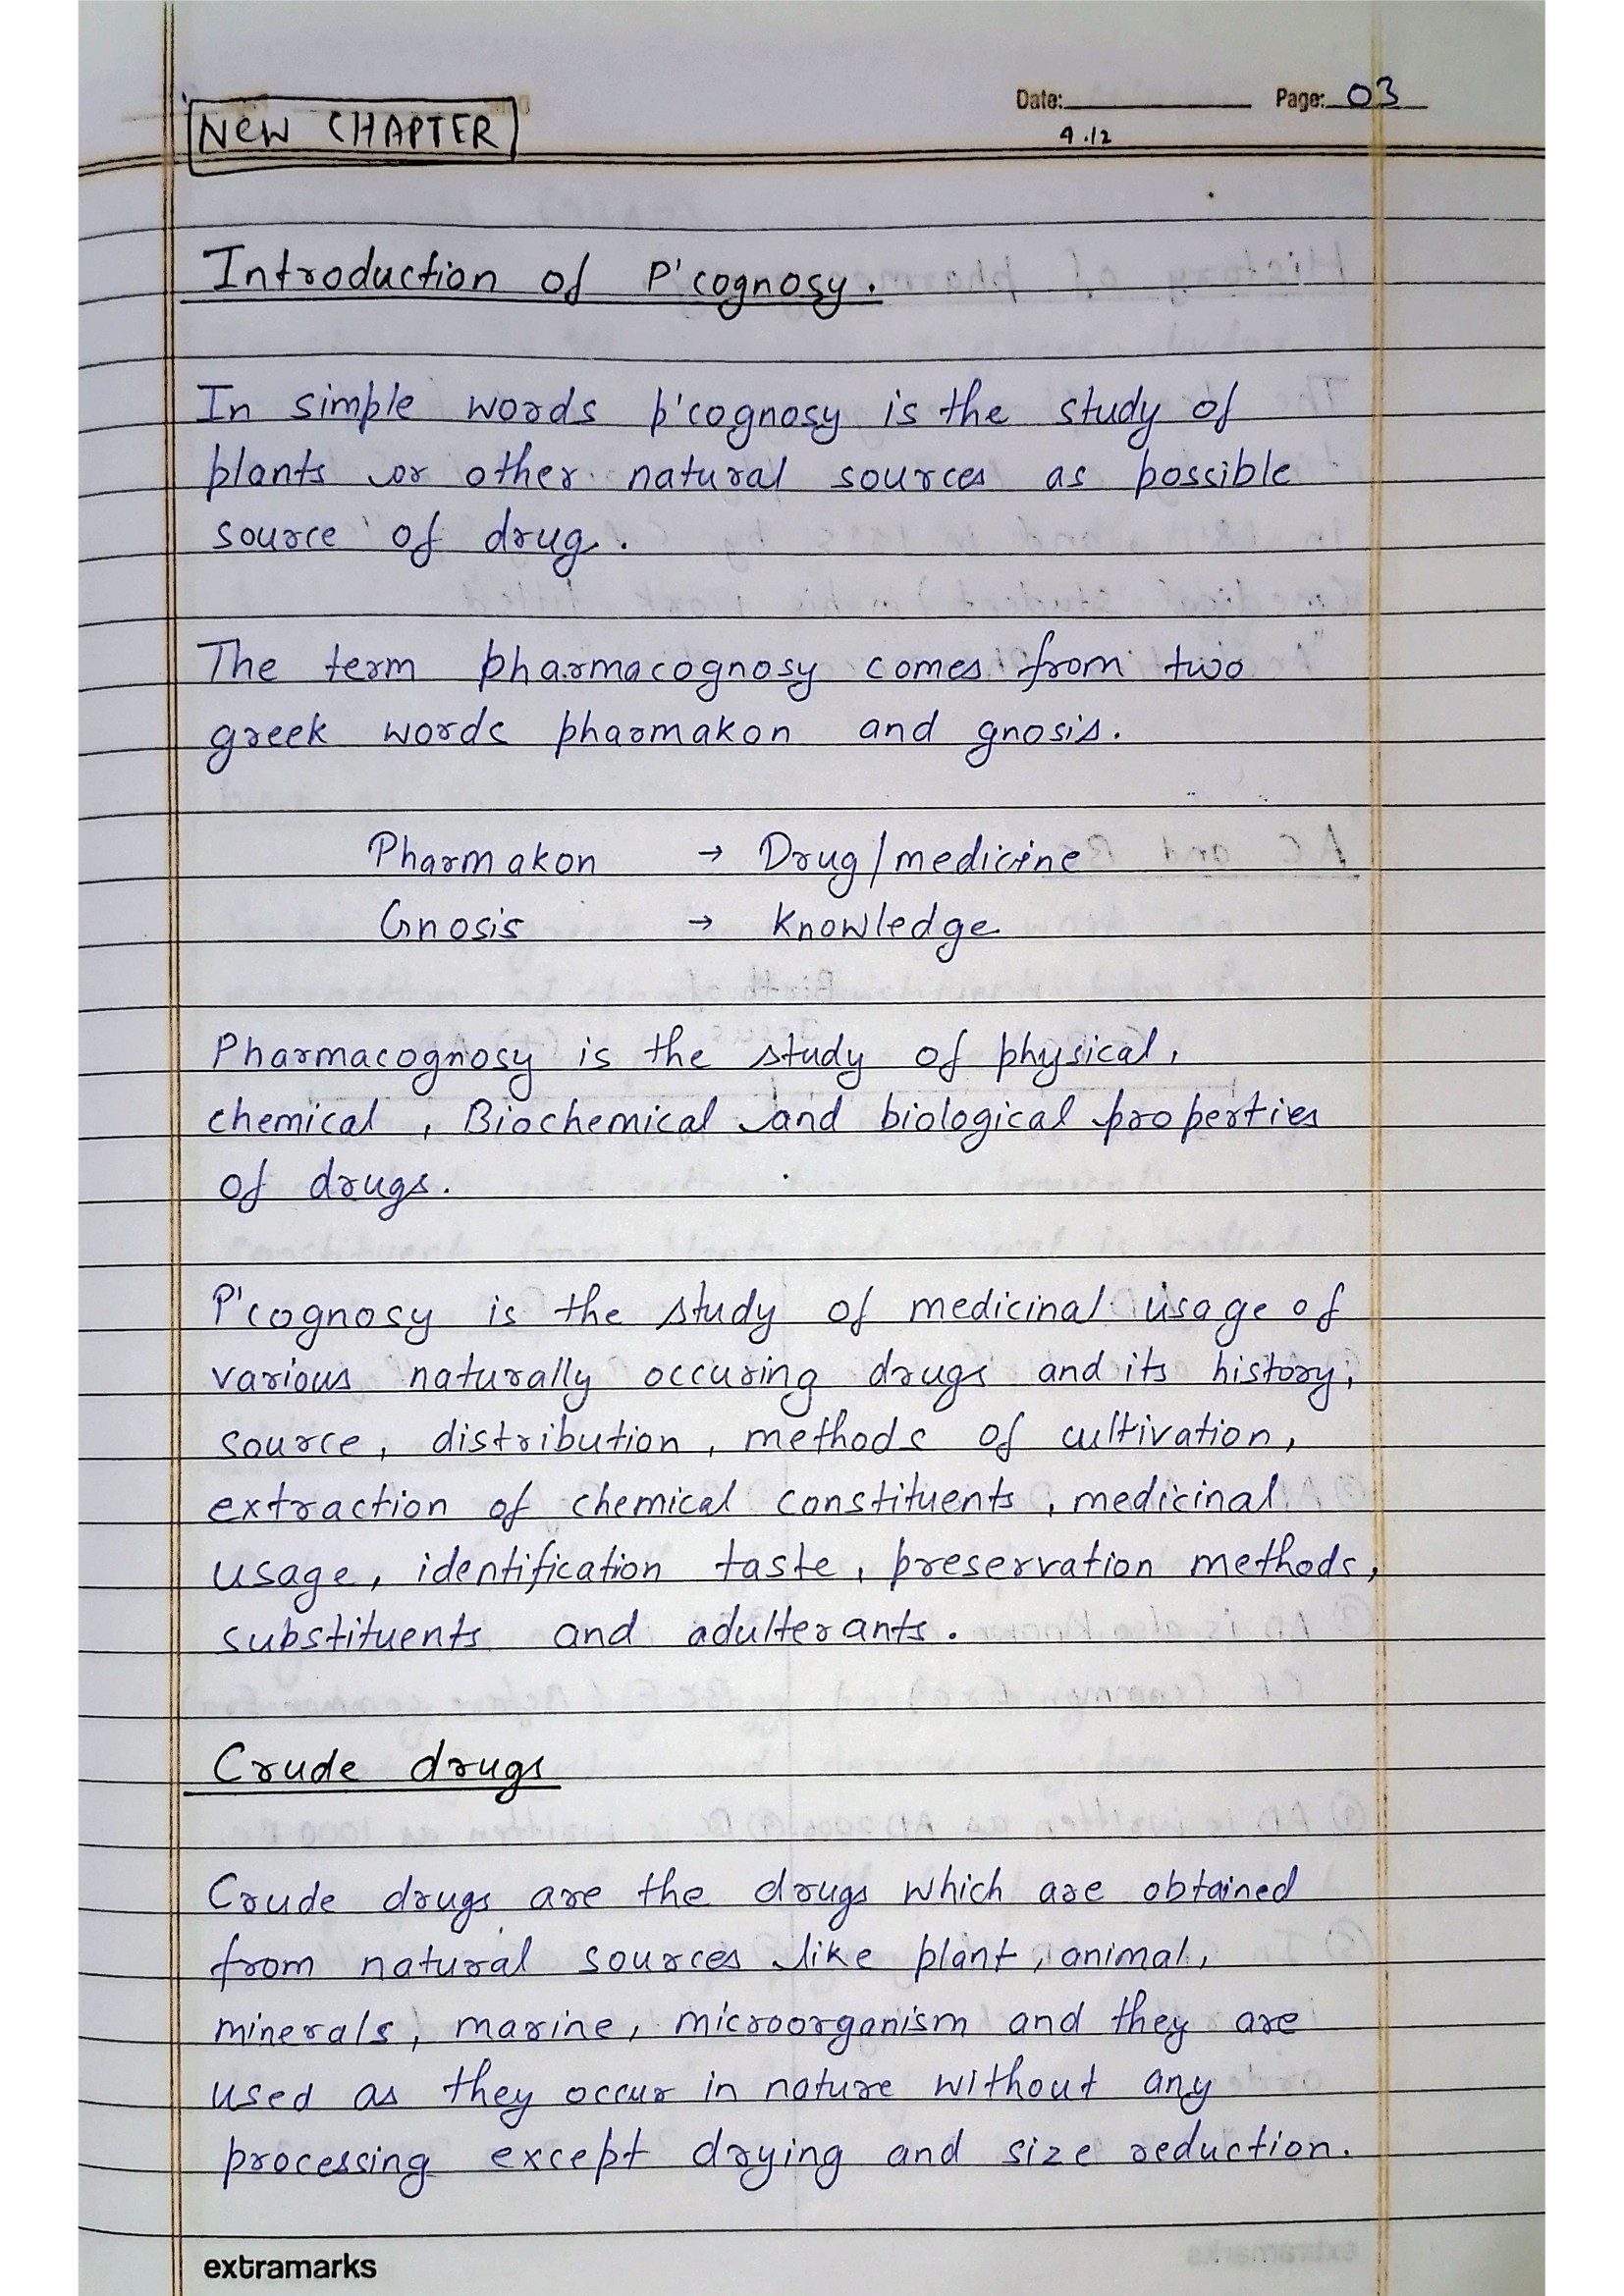 Date: Page: 03
NEW CHAPTER
9.12
Introduction of P'cognosy.
In simple words p'cognosy is the study of
plants or other natural sources as possible
source of drug.
The term pharmacognosy comes from two
greek words pharmakon and gnosis.
Pharmakon → Drug/medicine
Gnosis → Knowledge
Pharmacognosy is the study of physical,
chemical, Biochemical and biological properties
of drugs.
P'cognosy is the study of medicinal usage of
various naturally occuring drugs and its history,
source, distribution, methods of cultivation,
extraction of chemical constituents, medicinal
usage, identification taste, preservation methods,
substituents and adulterants.
Crude drugs
Crude drugs are the drugs which are obtained
from natural sources like plant, animal,
minerals, marine, microorganism and they are
used as they occur in nature without any
processing except drying and size reduction.
extramarks